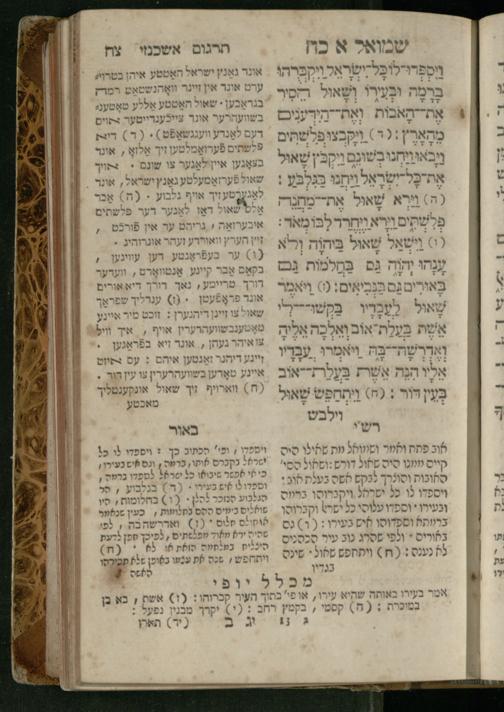 שמואל א כח
תרגום אשכנזי צח
וַיִּסְפְּדוּ־לוֹ כָּל־יִשְׂרָאֵל וַיִּקְבְּרֻהוּ
בָרָמָה וּבְעִירוֹ וְשָׁאוּל הֵסִיר
אֶת־הָאֹבוֹת וְאֶת־הַיִּדְּעֹנִים
מֵהָאָרֶץ : (ד) וַיִּקָּבְצוּ פְלִשְׁתִּים
וַיָּבֹאוּ וַיַּחֲנוּ בְשׁוּנֵם וַיִּקְבֹּץ שָׁאוּל
אֶת־כָּל־יִשְׂרָאֵל וַיַּחֲנוּ בַּגִּלְבֹּעַ :
(ה) וַיַּרְא שָׁאוּל אֶת־מַחֲנֵה
פְלִשְׁתִּים וַיִּרָא וַיֶּחֱרַד לִבּוֹ מְאֹד :
(ו) וַיִּשְׁאַל שָׁאוּל בַּיהֹוָה וְלֹא
עָנָהוּ יְהֹוָה גַּם בַּחֲלֹמוֹת גַּם
בָּאוּרִים גַּם בַּנְּבִיאִים : (ז) וַיֹּאמֶר
שָׁאוּל לַעֲבָדָיו בַּקְּשׁוּ־לִי
אֵשֶׁת בַּעֲלַת־אוֹב וְאֵלְכָה אֵלֶיהָ
וְאֶדְרְשָׁה־בָּהּ וַיֹּאמְרוּ עֲבָדָיו
אֵלָיו הִנֵּה אֵשֶׁת בַּעֲלַת־אוֹב
בְּעֵין דּוֹר : (ח) וַיִּתְחַפֵּשׂ שָׁאוּל
וילבש
אונד גאנץ ישראל האטטע איהן בטרויא
ערט אונד אין זיינר וואהנשטאט רמה
בגראבען · שאול האטטע אללע טאטענ
בשווערער אונד צייכענדייטער אויס
דעם לאנדע וועגגשאפט) · (ד) דיא
פלשתים פערזאמלטען זיך אלזא , אונד
בצאגען איין לאגער צו שונם · אויך
שאול פערזאמעלטע גאנץ ישראל , אונד
לאגערטע זיך אויף גלבוע · (ה) אבר
אלס שאול דאז לאגער דער פלשתים
איבערזאה , גריהט ער אין פורכט ,
זיין הערץ וואורדע זעהר אונרוהיג ·
(ו) ער בעפראגטע דען עוויגען ,
בקאם אבר קיינע אנטווארט , וועדער
דורך טריימע , נאך דורך דיא אורים
אונד פראפעטן · (ז) ענדליך שפראך
שאול צו זיינן דיהנערן : זוכט מיר איינע
טאטענבשווערערין אויף , איך וויל
צו איהר געהן , אונד זיא בפראגען ·
זיינע דיהנר זאגטען איהם : עס איזט
איינע טאדטענבשווערערין צו עין דור ·
(ח) ווארויף זיך שאול אונקענטליך
מאכטע
רש"י
אוב פתח ואמר ושמואל מת שאילו היה
קיים ממנו היה שאול דורש : ושאול הסיר
האובות והוזקק לבקש אשה בעלת אוב :
ויספדו לו כל ישראל ויקברוהו ברמה
ובעירו · וספדו עלוהי כל ישראל וקברוהו
ברמתא וספדוהו איש בעירו : (ו) גם
באורים · ולפי שהרג נוב עיר הכהנים
לא נענה : (ח) ויתחפש שאול · שינה
בגדיו
באור
ויספדו , ופי' הכתוב כך : ויספדו לו כל
ישראל בקברם אותו , ברמה , וגם איש בעירו ,
כי אי אפשר שיבואו כל ישראל לספדו ברמה ,
וספדו לו איש בעירו · (ד) בגלבוע , הר
הגלבוע הנזכר להלן · (ו) בחלומות , היו
שואלים בימים ההם בחלומות , כענין שנאמר
אוקולם פלוס · (ז) ואדרשה בה , לפי
שהיה ירא מאוד מפלשתים , לפיכך חפץ לדעת
היצליח במלחמה הזאת או לא · (ח)
ויתחפש , שנה את עצמו באופן שלא תכירהו
האשה
מכלל יופי
אמר בעירו באותה שהיא עירו , או פי' בתוך העיר קברוהו : (ז) אשת , בא כן
במוכרת : (ח) קסמי , בקמץ רחב : (י) יקרך מבנין נפעל :
ג 13 יג ב (יד) תארו